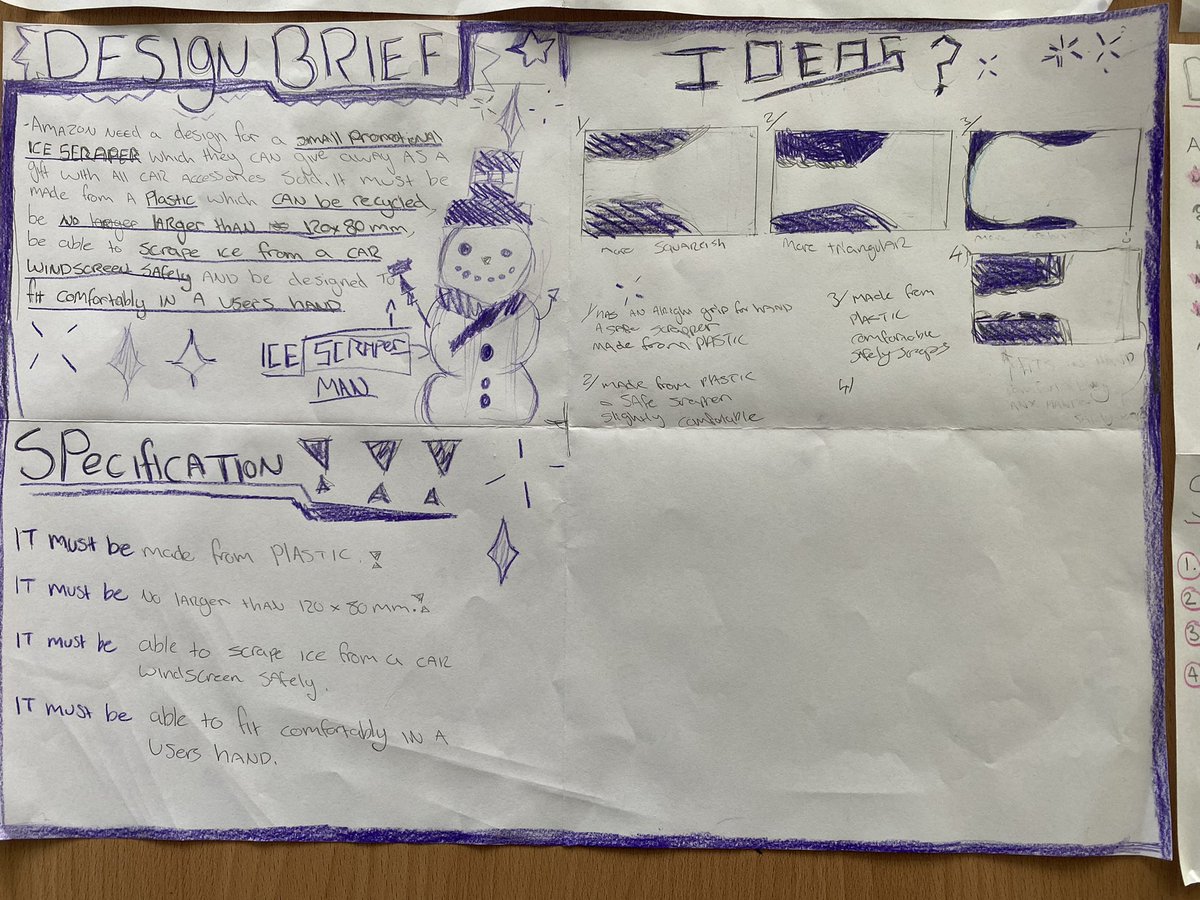 DESIGN BRIEF
- AMAZON NEED a design for a small promotional
ICE SCRAPER which they CAN give away AS A
gift with All CAR Accessories Sold. It must be
made from A Plastic which CAN be recycled,
be no larger larger than 120x80mm,
be able to scrape ice from a CAR
WINDSCREEN SAfely AND be designed to
fit comfortably IN A users hand
ICE SCRAPER
MAN
IDEAS?
1/
2/
3/
4/
More Squareish
More triangular
1/ HAS AN Alright grip for hand
A safe scrapper
made from PLASTIC
2/ made from PLASTIC
a SAfe scraper
slightly comfortable
3/ MADE from
PLASTIC
comfortable
Safely scrapes
4/
SPecificATION
IT must be made from PlASTIC.
IT must be NO LArger thAN 120 x 80 mm.
IT must be able to scrape ice from a CAR
Windscreen SAfely.
IT must be able to fit comfortably IN A
Users hAND.
1.
2
3
4